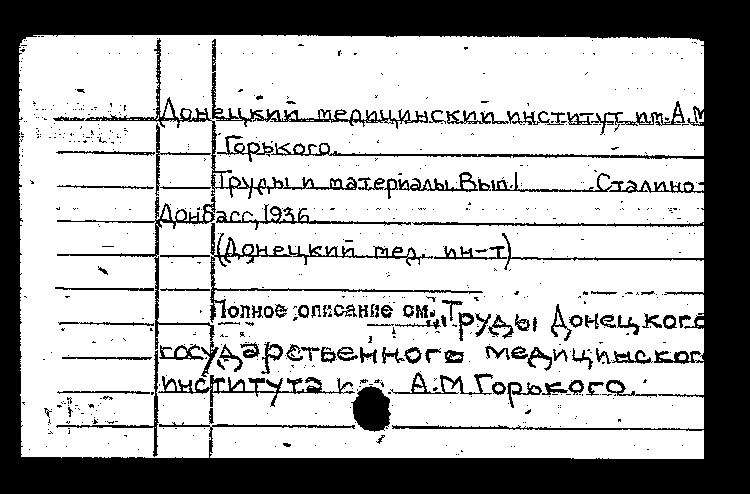 Донецкий медицинский институт им. А.М
Горького.
Труды и материалы. Вып.1 Сталино-
Донбасс, 1936
(Донецкий мед. ин-т)
Полное описание см. „Труды Донецкого
государственного медицинского
института им. А.М Горького.